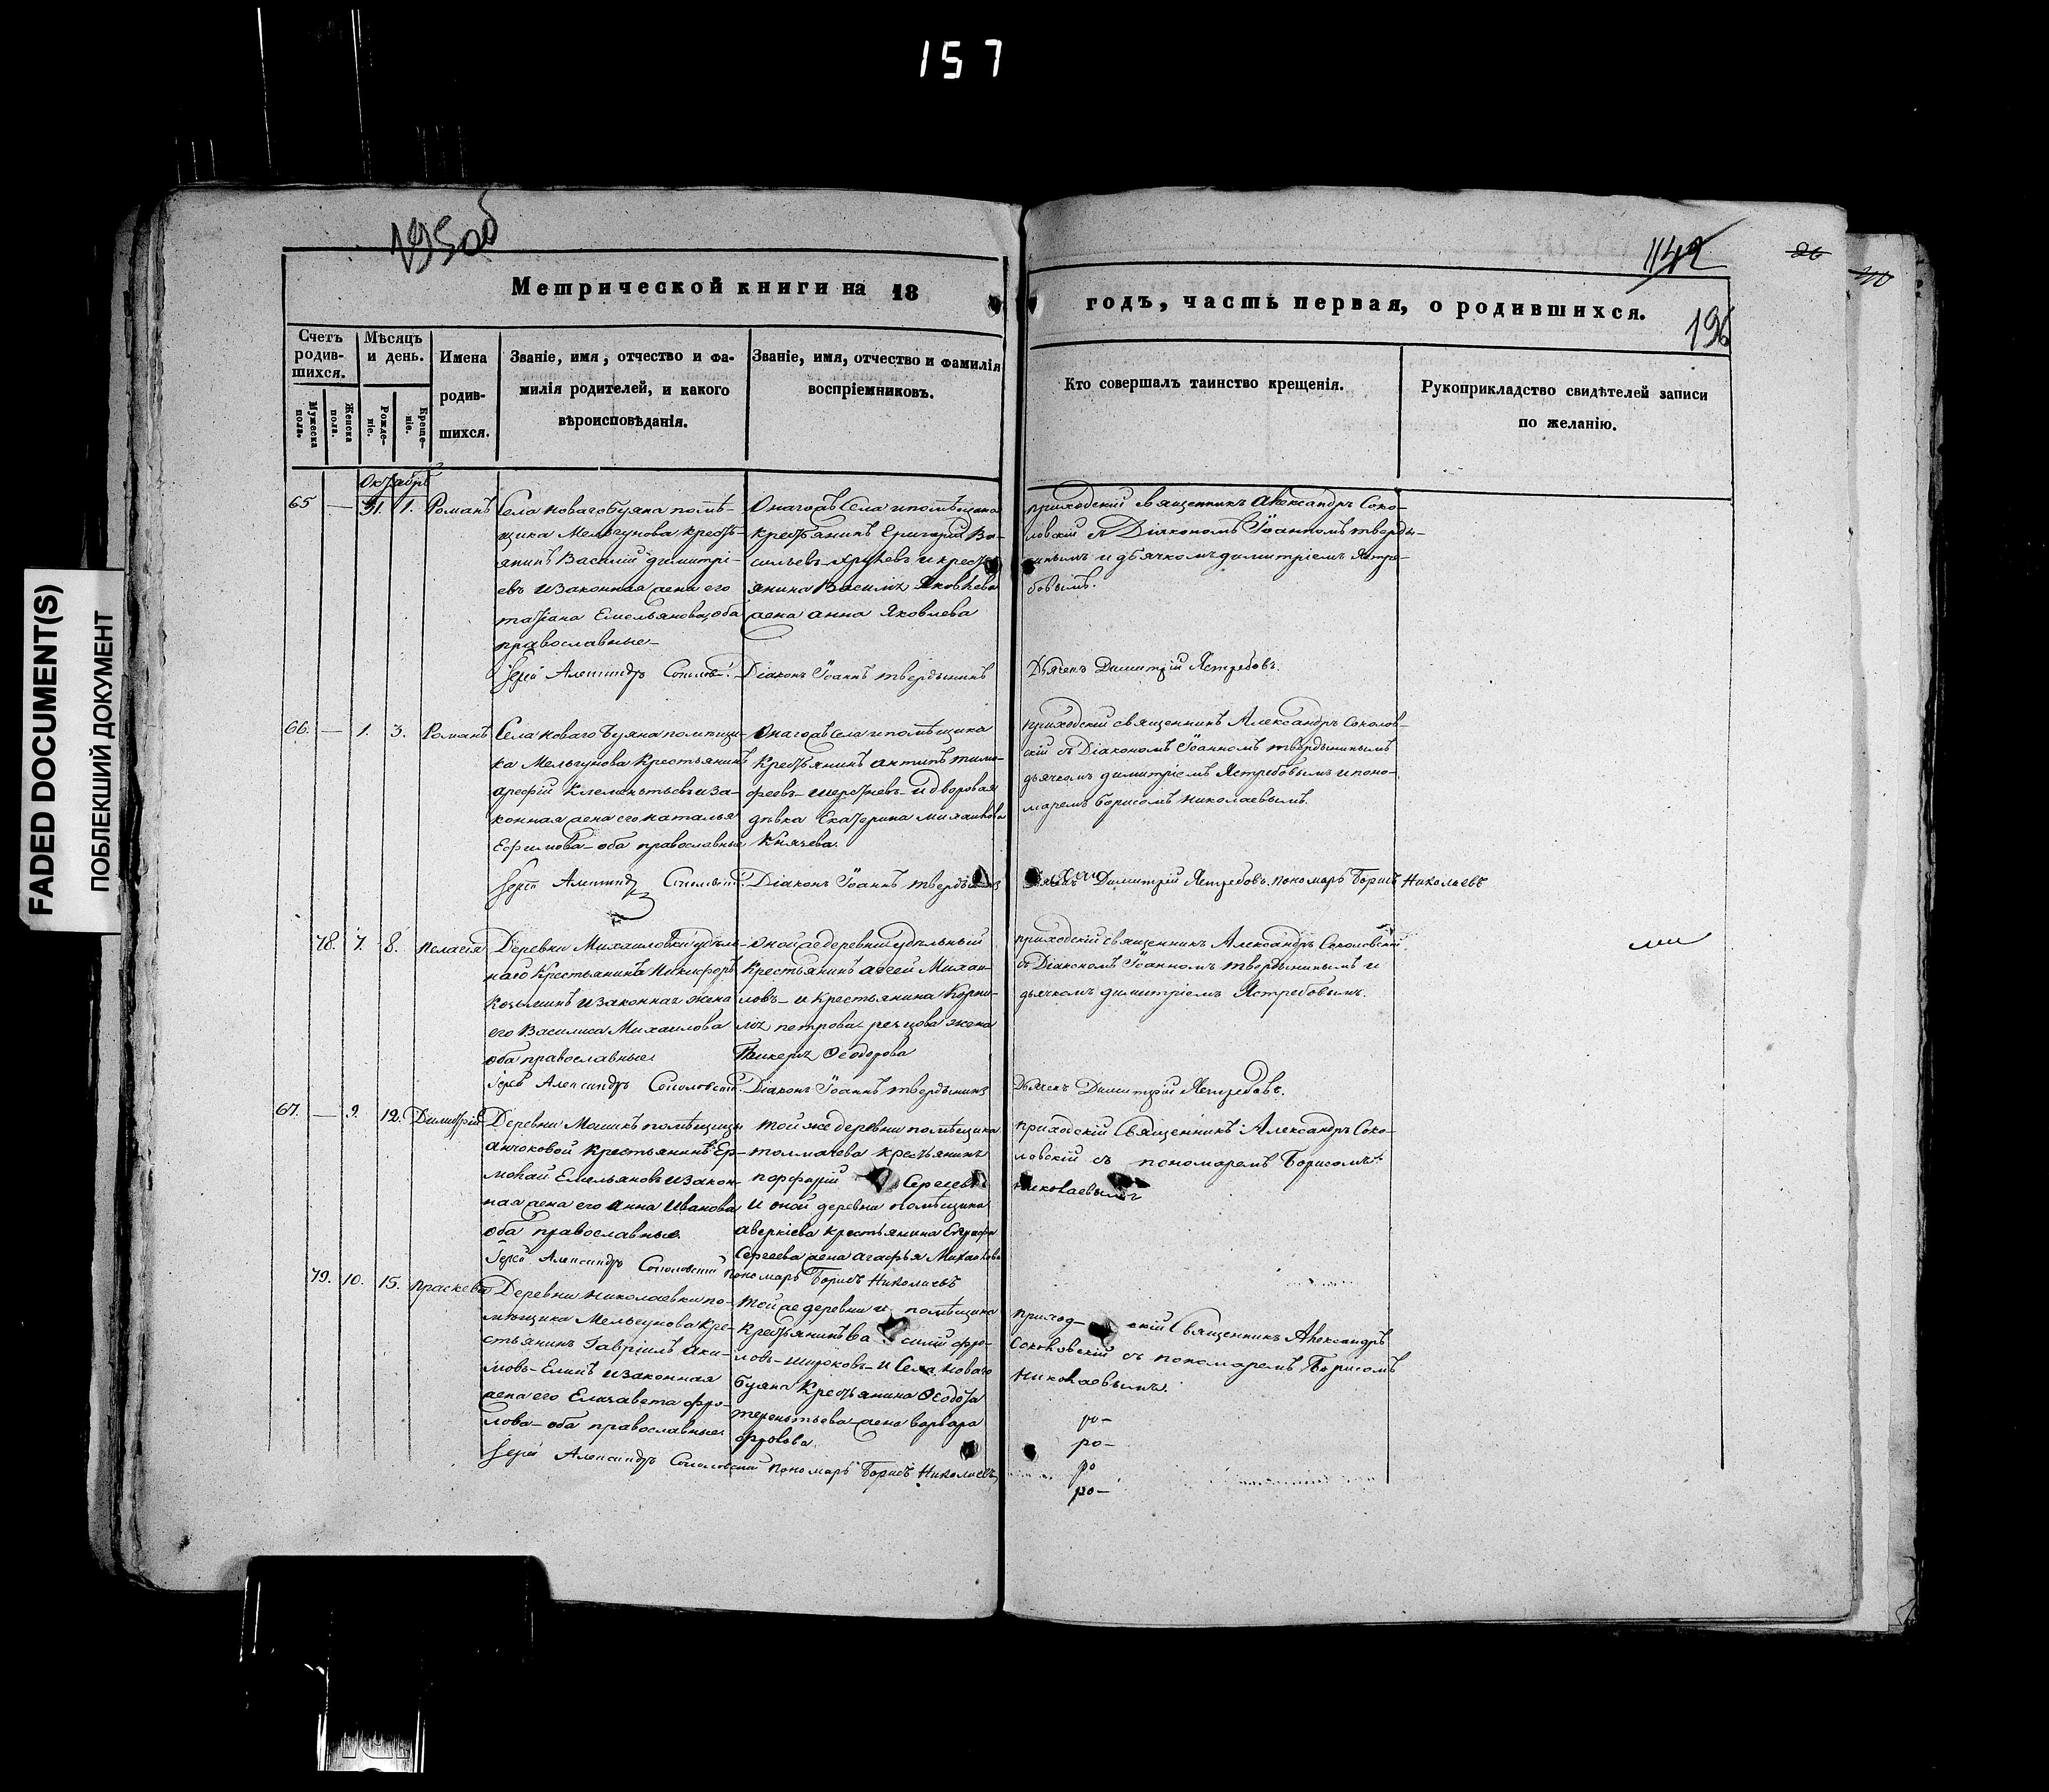 157
FADED DOCUMENT(S)
ПОБЛЕКШИЙ ДОКУМЕНТ
195об
1142
26
196
Метрической книги на 18
годъ, часть первая, о родившихся.
Счетъ родив-шихся.
Мужеска пола.
Женска пола.
Мѣсяцъ и день.
Рожде-ніе.
Креще-ніе.
Имена
родив-
шихся.
Званіе, имя, отчество и фа-
милія родителей, и какого
вѣроисповѣданія.
Званіе, имя, отчество и фамилія
воспріемниковъ.
Кто совершалъ таинство крещенія.
Рукоприкладство свидѣтелей записи
по желанію.
Октябрь
65 — 31. 1. Романъ
Села новаго буяна помѣ-
щика Мельгунова кресть-
янинъ Василій димитрі-
евъ и законная жена его
татіана Емельянова, оба
православные—
Іерей Александръ Соколов.
Онагожъ Села и помѣщика
крестьянинъ Григорій Ва-
сильевъ и крест-
янина Василія Яковлева
жена анна Яковлева
Діаконъ Іоаннъ твердынинъ
приходскій священникъ Александръ Соко-
ловскій съ Діакономъ Іоанномъ тверды-
нинымъ и дьячкомъ димитріемъ Ястре-
бовымъ.
Дьячекъ Димитрій Ястребовъ.
66. — 1. 3. Романъ
Села новаго буяна помѣщи-
ка Мельгунова Крестьянинъ
арефій Клементьевъ и за-
конная жена его наталья
Ефимова— оба православные
Іерей Александръ Соколовскій.
Онагожъ Села и помѣщика
Крестьянинъ антипъ тимо-
феевъ и дворовая
дѣвка Екатерина михаилова
Князева.
Діаконъ Іоаннъ твердынинъ
приходскій священникъ Александръ Соколов-
скій съ Діакономъ Іоанномъ твердынинымъ
дьячкомъ димитріемъ Ястребовымъ и поно-
маремъ борисомъ николаевымъ.
Дьячекъ Димитрій Ястребовъ. пономарь Борисъ Николаевъ
78. 7. 8. пелагія
Деревни Михаиловки удѣль-
наго Крестьянинъ Никифоръ
Козьминъ и законная жена
его Василиса Михаилова
оба православные
Іерей Александръ Соколовскій.
Оной же деревни удѣльный
Крестьянинъ авсей Михаи-
ловъ— и Крестьянина Корни-
лія петрова жена
Гликерія Ѳеодорова
Діаконъ Іоаннъ твердынинъ
приходскій священникъ Александръ Соколовскій
съ Діакономъ Іоанномъ твердынинымъ и
дьячкомъ димитріемъ Ястребовымъ.
Дьячекъ Димитрій Ястребовъ.
67. — 9. 12. Димитрій
Деревни помѣщицы
Крестьянинъ Ер-
молай Емельяновъ и закон-
ная жена его Анна Иванова
оба православные.
Іерей Александръ Соколовскій
той же деревни помѣщика
толмачева крестьянинъ
порфирій Сергеевъ
и оной деревни помѣщика
аверкіева крестьянина Евграфа
Сергеева жена агафья Михаилова
пономарь Борисъ Николаевъ
приходскій Священникъ Александръ Соко-
ловскій съ пономаремъ Борисомъ
николаевымъ
79. 10. 15. праскева
Деревни николаевки по-
мѣщика Мельгунова Кре-
стьянинъ Гавріилъ Аки-
мовъ— Елинъ и законная
жена его Елизавета фро-
лова— оба православные
Іерей Александръ Соколовскій
той же деревни и помѣщика
Крестьянинъ Ва силій фро-
ловъ— широковъ— и Села новаго
буяна Крестьянина Ѳедота
терентьева жена варвара
фролова.
пономарь Борисъ Николаевъ
приход— скій Священникъ Александръ
Соколовскій съ пономаремъ Борисомъ
николаевымъ.
ро—
ро—
ро
ро—